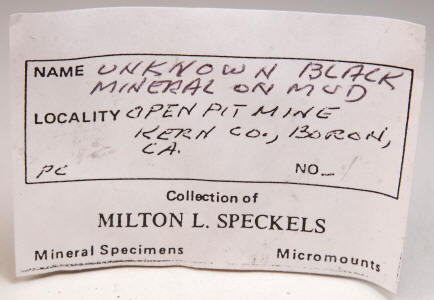 NAME UNKNOWN BLACK
MINERAL ON MUD
LOCALITY OPEN PIT MINE
KERN CO., BORON,
CA.
PC NO._
Collection of
MILTON L. SPECKELS
Mineral Specimens Micromounts